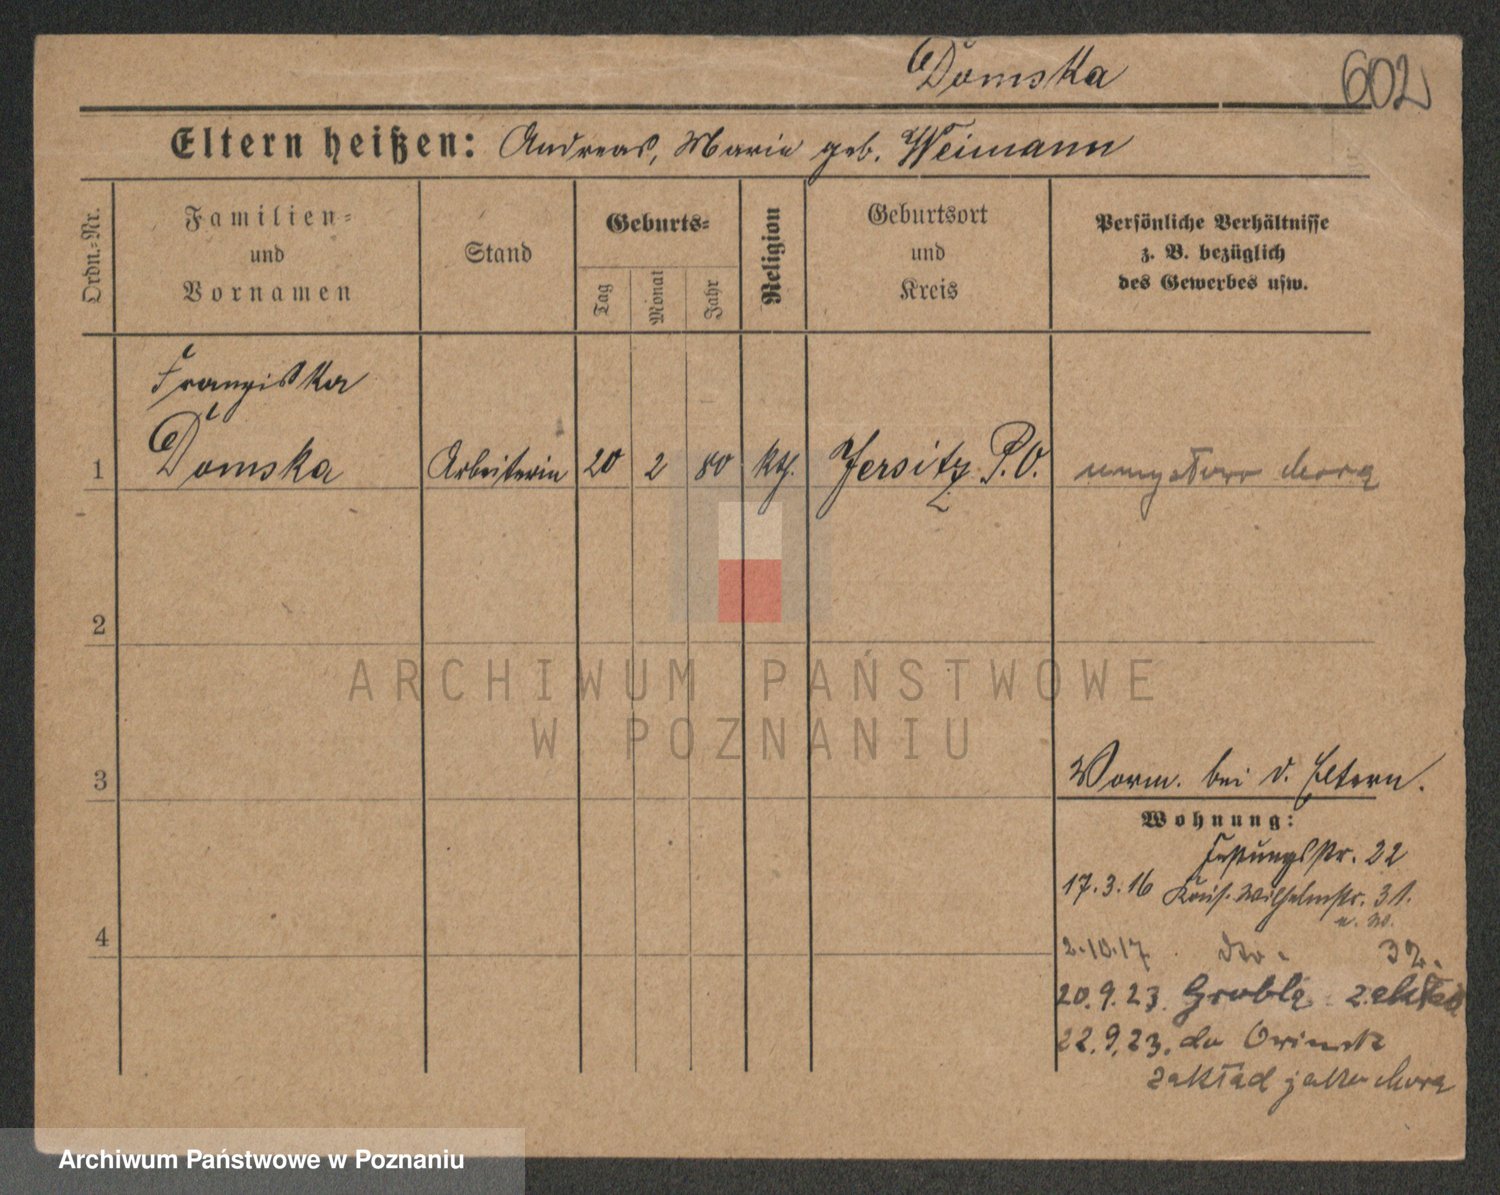 Domska
602
Eltern heißen: Andreas, Marie geb. Weimann
Ordn.=Nr.
Familien=
und
Vornamen
Stand
Geburts=
Tag
Monat
Jahr
Religion
Geburtsort
und
Kreis
Persönliche Verhältnisse
z. B. bezüglich
des Gewerbes usw.
Franziska
1 Domska Arbeiterin 20 2 80 kth. Jersitz P.O. umysłowo chora
2
3
4
Vorm. bei d. Eltern.
Wohnung:
Festungsstr. 22
17.3.16 Kais. Wilhelmstr. 31.
2.10.17 dto. 32.
20.9.23. Grobla zakład
22.9.23. do zakład jako chora
ARCHIWUM PAŃSTWOWE
W POZNANIU
Archiwum Państwowe w Poznaniu